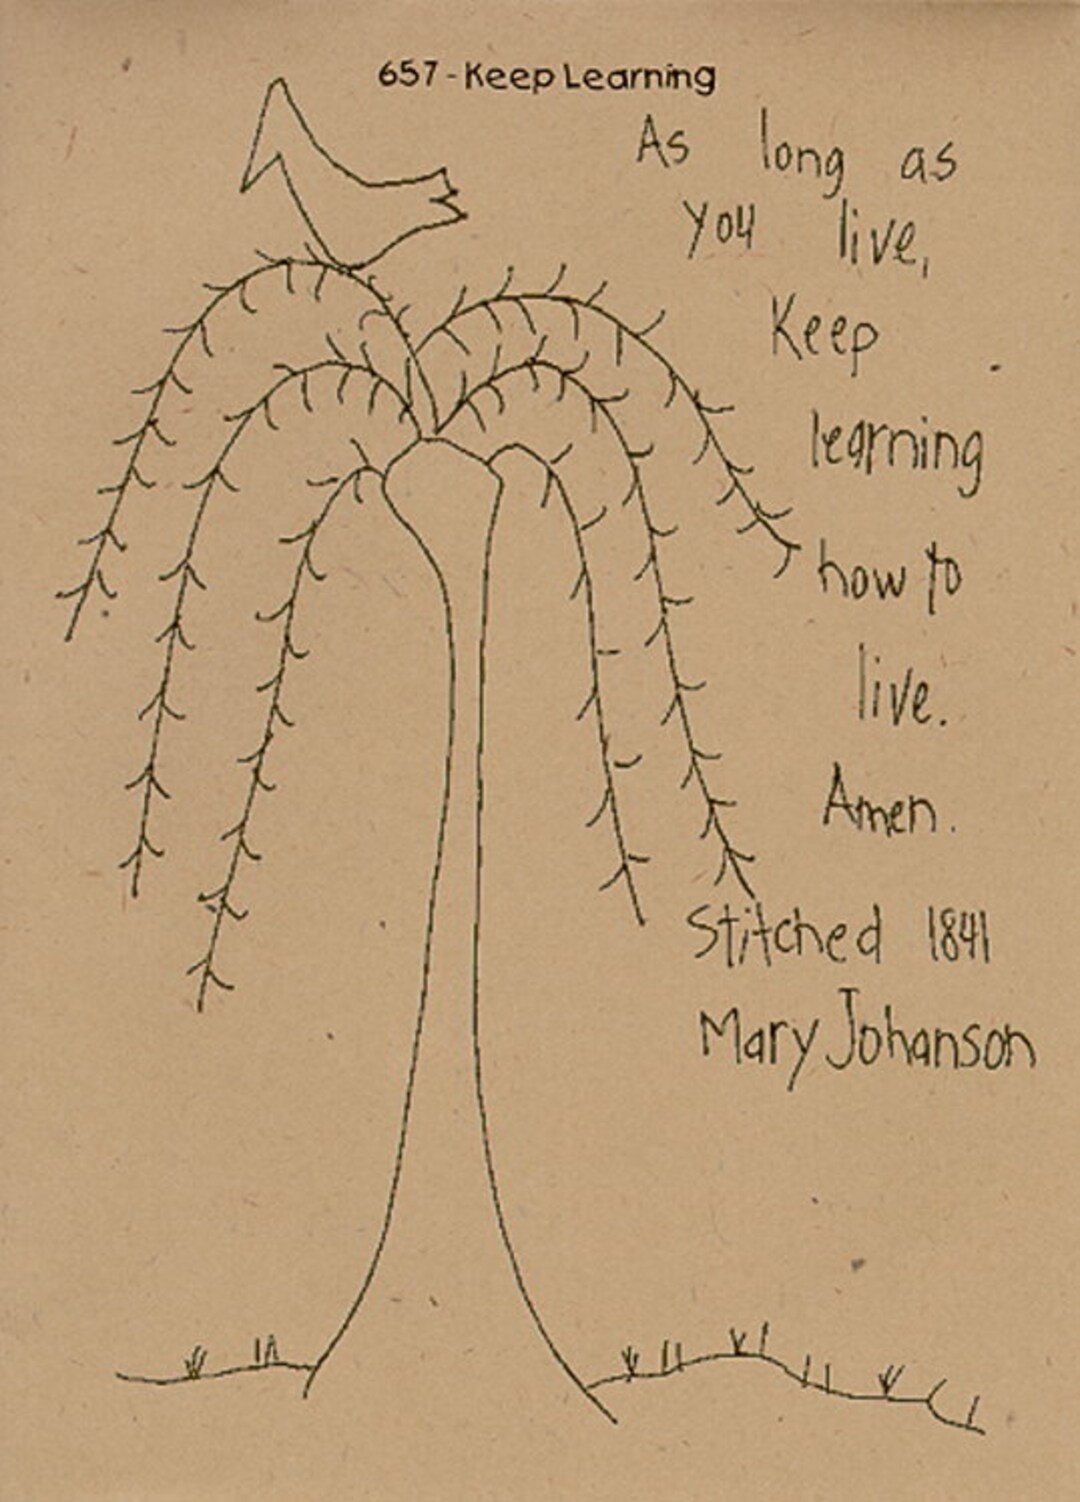 657 - Keep Learning
As long as
you live,
Keep
learning
how to
live.
Amen.
Stitched 1841
Mary Johanson